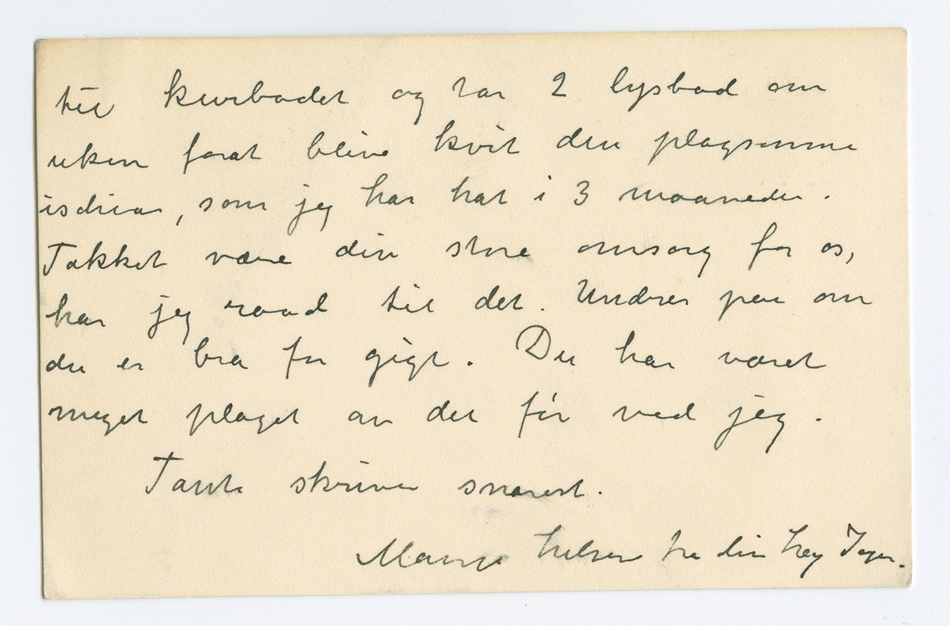 til kurbadet og tar 2 lysbad om
uken forat blive kvit den plagsomme
ischias, som jeg har hat i 3 maaneder.
Takket være din store omsorg for os,
har jeg raad til det. Undres paa om
du er bra for gigt. Du har været
meget plaget av det før ved jeg.
Tante skriver snarest.
Mange hilsner fra din